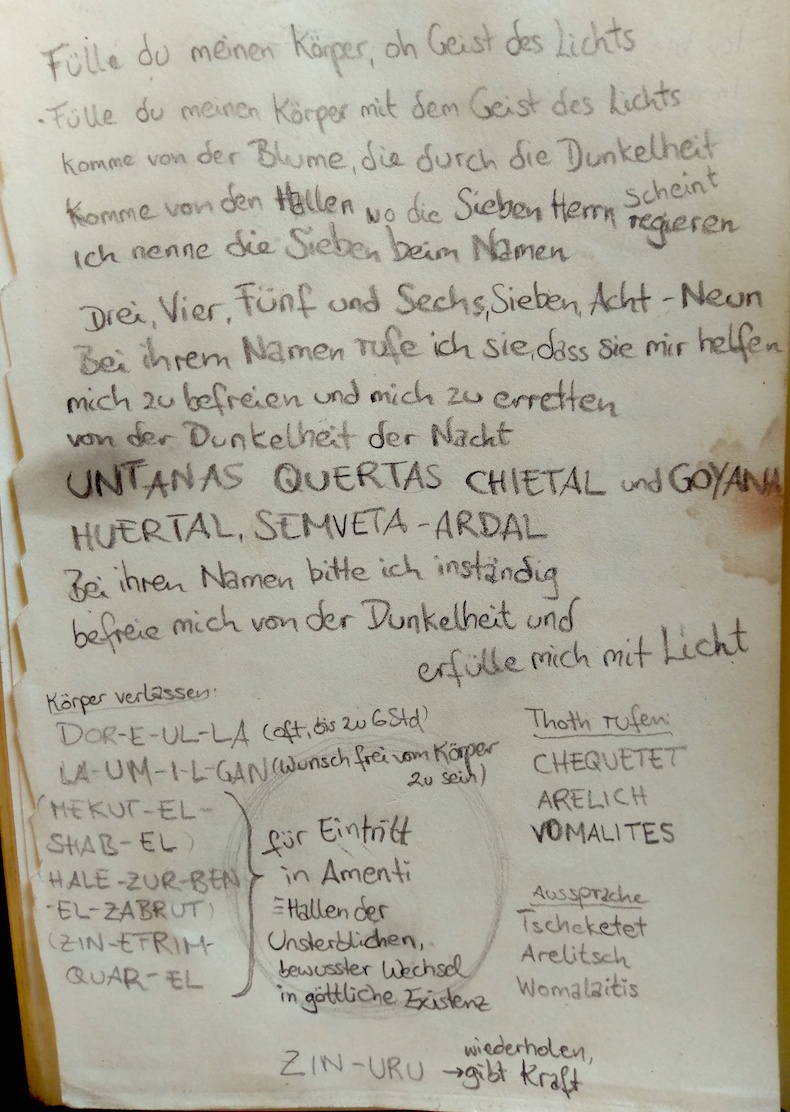 Fülle du meinen Körper, oh Geist des Lichts
· Fülle du meinen Körper mit dem Geist des Lichts
Komme von der Blume, die durch die Dunkelheit
scheint
Komme von den Hallen wo die Sieben Herrn regieren
Ich nenne die Sieben beim Namen
Drei, Vier, Fünf und Sechs, Sieben, Acht - Neun
Bei ihrem Namen rufe ich sie, dass sie mir helfen
mich zu befreien und mich zu erretten
von der Dunkelheit der Nacht
UNTANAS QUERTAS CHIETAL und GOYANA
HUERTAL, SEMVETA - ARDAL
Bei ihren Namen bitte ich inständig
befreie mich von der Dunkelheit und
erfülle mich mit Licht
Körper verlassen:
DOR-E-UL-LA (oft, bis zu 6 Std)
LA-UM-I-L-GAN (Wunsch frei vom Körper
zu sein)
(MEKUT-EL-
SHAB-EL)
HALE-ZUR-BEN
-EL-ZABRUT)
(ZIN-EFRIM-
QUAR-EL
für Eintritt
in Amenti
= Hallen der
Unsterblichen,
bewusster Wechsel
in göttliche Existenz
Thoth rufen:
CHEQUETET
ARELICH
VOMALITES
Aussprache
Tscheketet
Arelitsch
Womalaitis
ZIN-URU wiederholen,
→ gibt Kraft